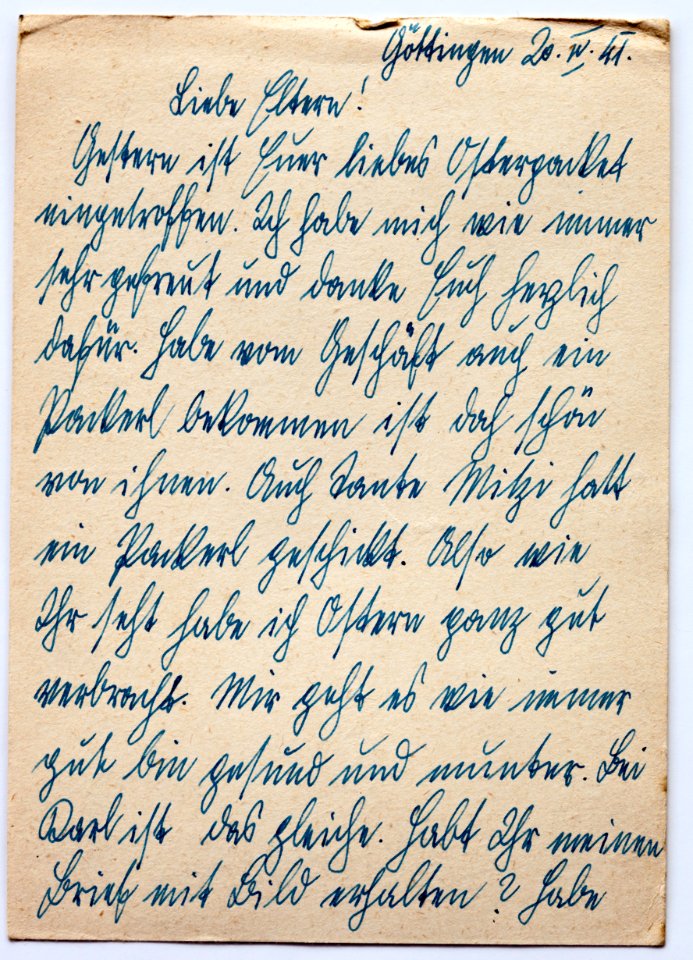 Göttingen 20. IV. 41.
Liebe Eltern!
Gestern ist Euer liebes Osterpacket
eingetroffen. Ich habe mich wie immer
sehr gefreut und danke Euch herzlich
dafür. Habe vom Geschäft auch ein
Packerl bekommen ist doch schön
von ihnen. Auch Tante Mitzi hatt
ein Packerl geschickt. Also wie
Ihr seht habe ich Ostern ganz gut
verbracht. Mir geht es wie immer
gut bin gesund und munter. Bei
Karl ist das gleiche. Habt Ihr meinen
Brief mit Bild erhalten? Habe